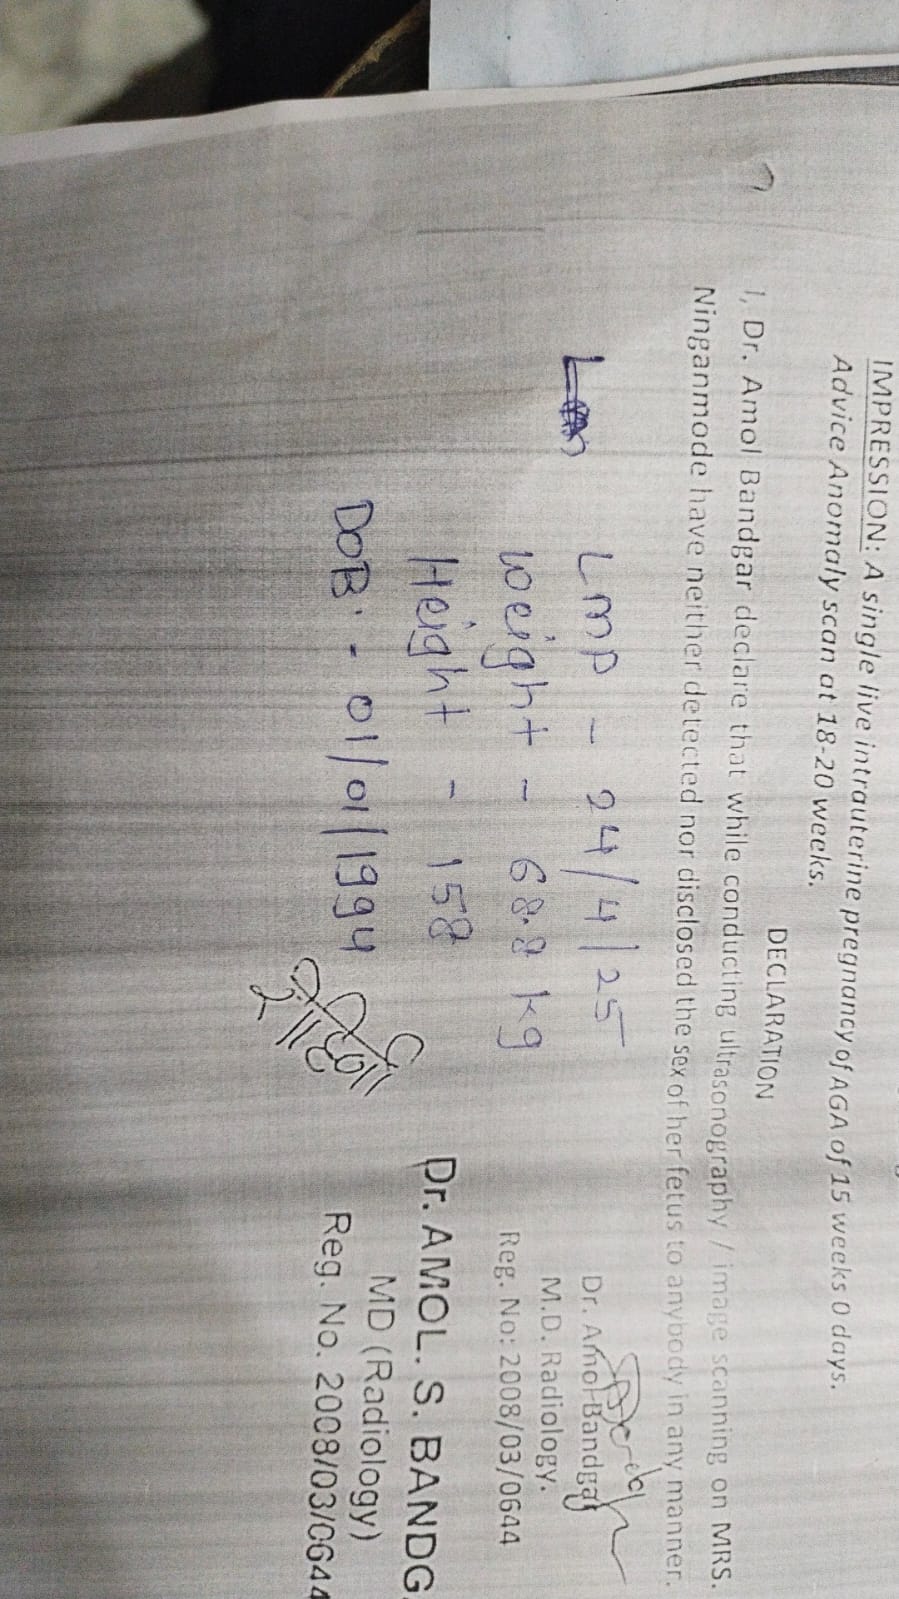 IMPRESSION: A single live intrauterine pregnancy of AGA of 15 weeks 0 days.
Advice Anomaly scan at 18-20 weeks.
DECLARATION
I, Dr. Amol Bandgar declare that while conducting ultrasonography / image scanning on MRS.
Ninganmode have neither detected nor disclosed the sex of her fetus to anybody in any manner.
Dr. Amol Bandgar
M.D. Radiology.
Reg. No: 2008/03/0644
Lmp - 24/4/25
weight - 68.8 kg
Height - 158
DOB. - 01/01/1994
Dr. AMOL. S. BANDG
MD (Radiology)
Reg. No. 2008/03/0644